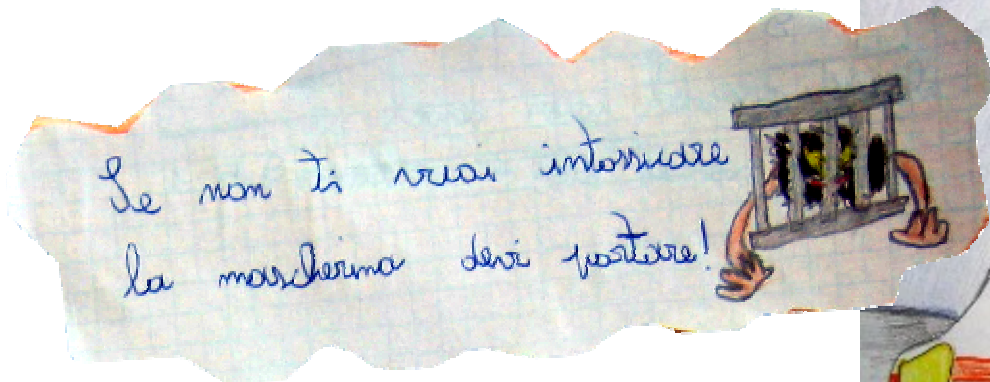 Se non ti vuoi intossicare
la mascherina devi portare!